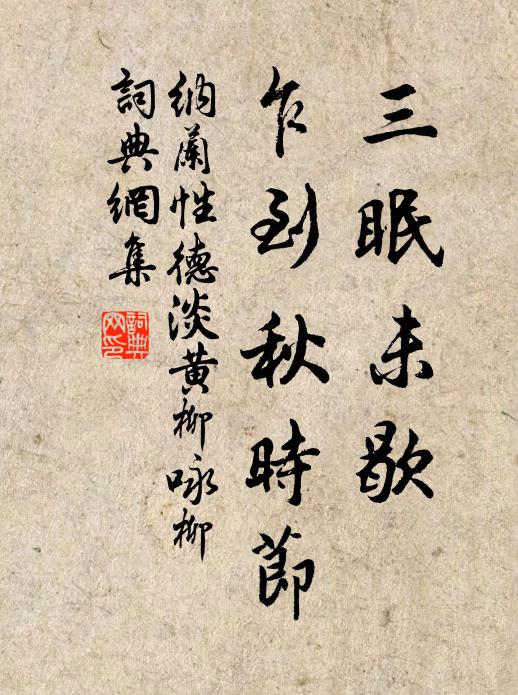 三眠未歇
乍到秋時節
納蘭性德淡黃柳咏柳
詞典網集
詞典
网印